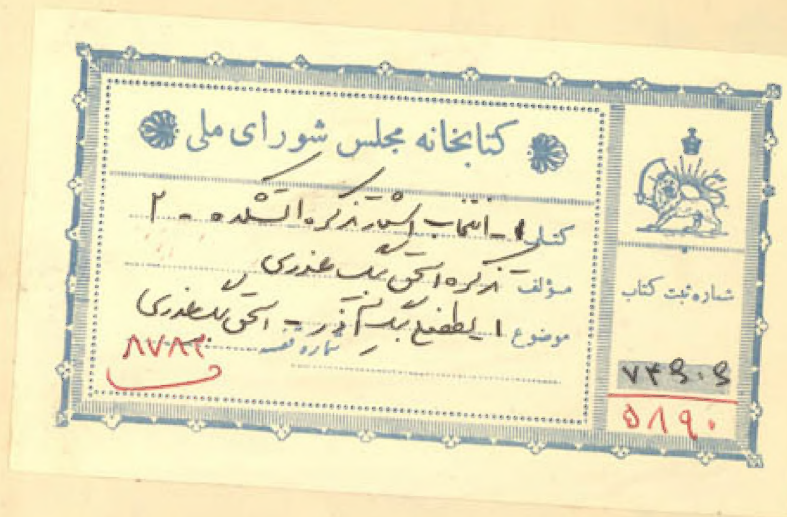 کتابخانه مجلس شورای ملی
کتاب ۱ - انتخاب اشعار تذکره آتشکده - ۲
مؤلف تذکره اسحق بیک عذری
موضوع ۱ لطفعلی بیک آذر - اسحق بیک عذری
شماره قفسه ۸۷۸۳
شماره ثبت کتاب
۷۴۶۰۶
۵۸۹۰